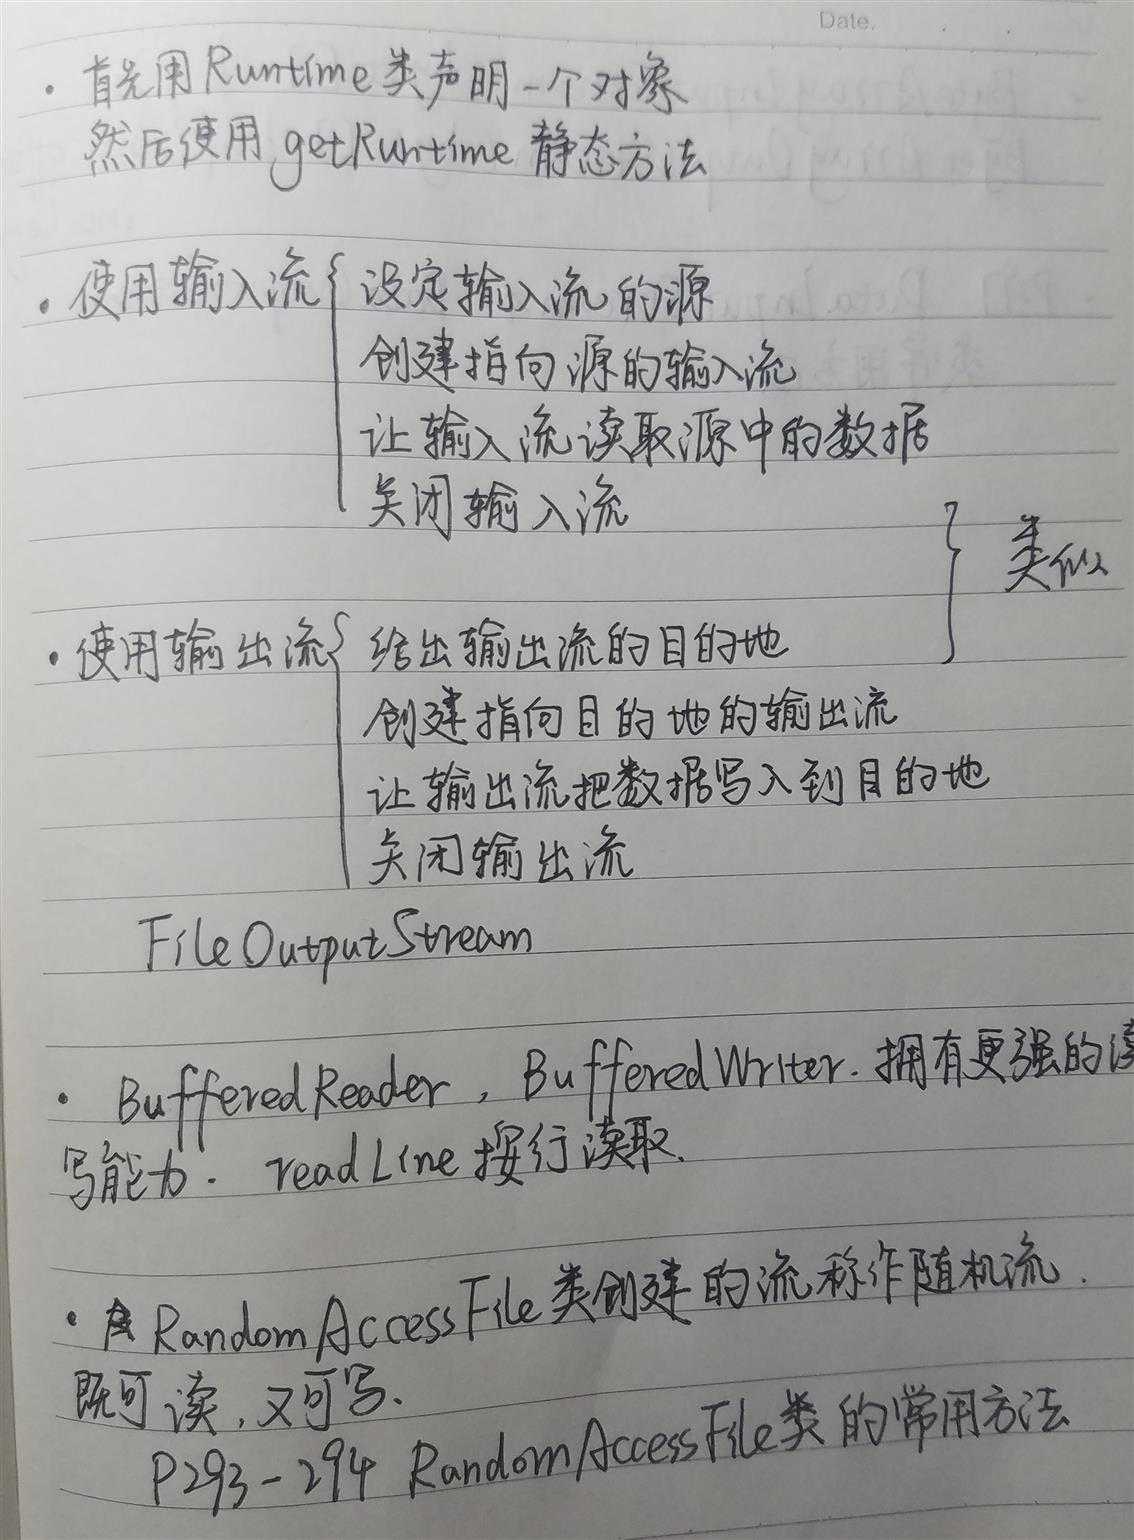 Date.
· 首先用Runtime类声明一个对象
然后使用getRuntime静态方法
· 使用输入流{ 设定输入流的源
创建指向源的输入流
让输入流读取源中的数据
关闭输入流
} 类似
· 使用输出流{ 给出输出流的目的地
创建指向目的地的输出流
让输出流把数据写入到目的地
关闭输出流
FileOutputStream
· BufferedReader , BufferedWriter. 拥有更强的读
写能力. readLine 按行读取.
· RandomAccessFile类创建的流称作随机流.
既可读,又可写.
P293-294 RandomAccessFile类的常用方法